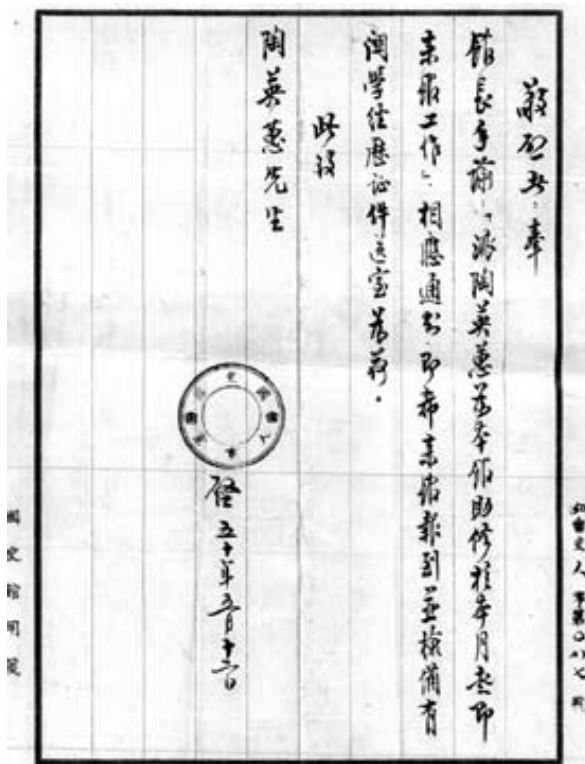 敬啟者：奉
館長手諭：「派陶英惠為本館助修於本月起即
來館工作」。相應通知即希來館報到並檢備有
關學经歷证件送室為荷。
此致
陶英惠先生
啓 五十年五月
國史館用箋